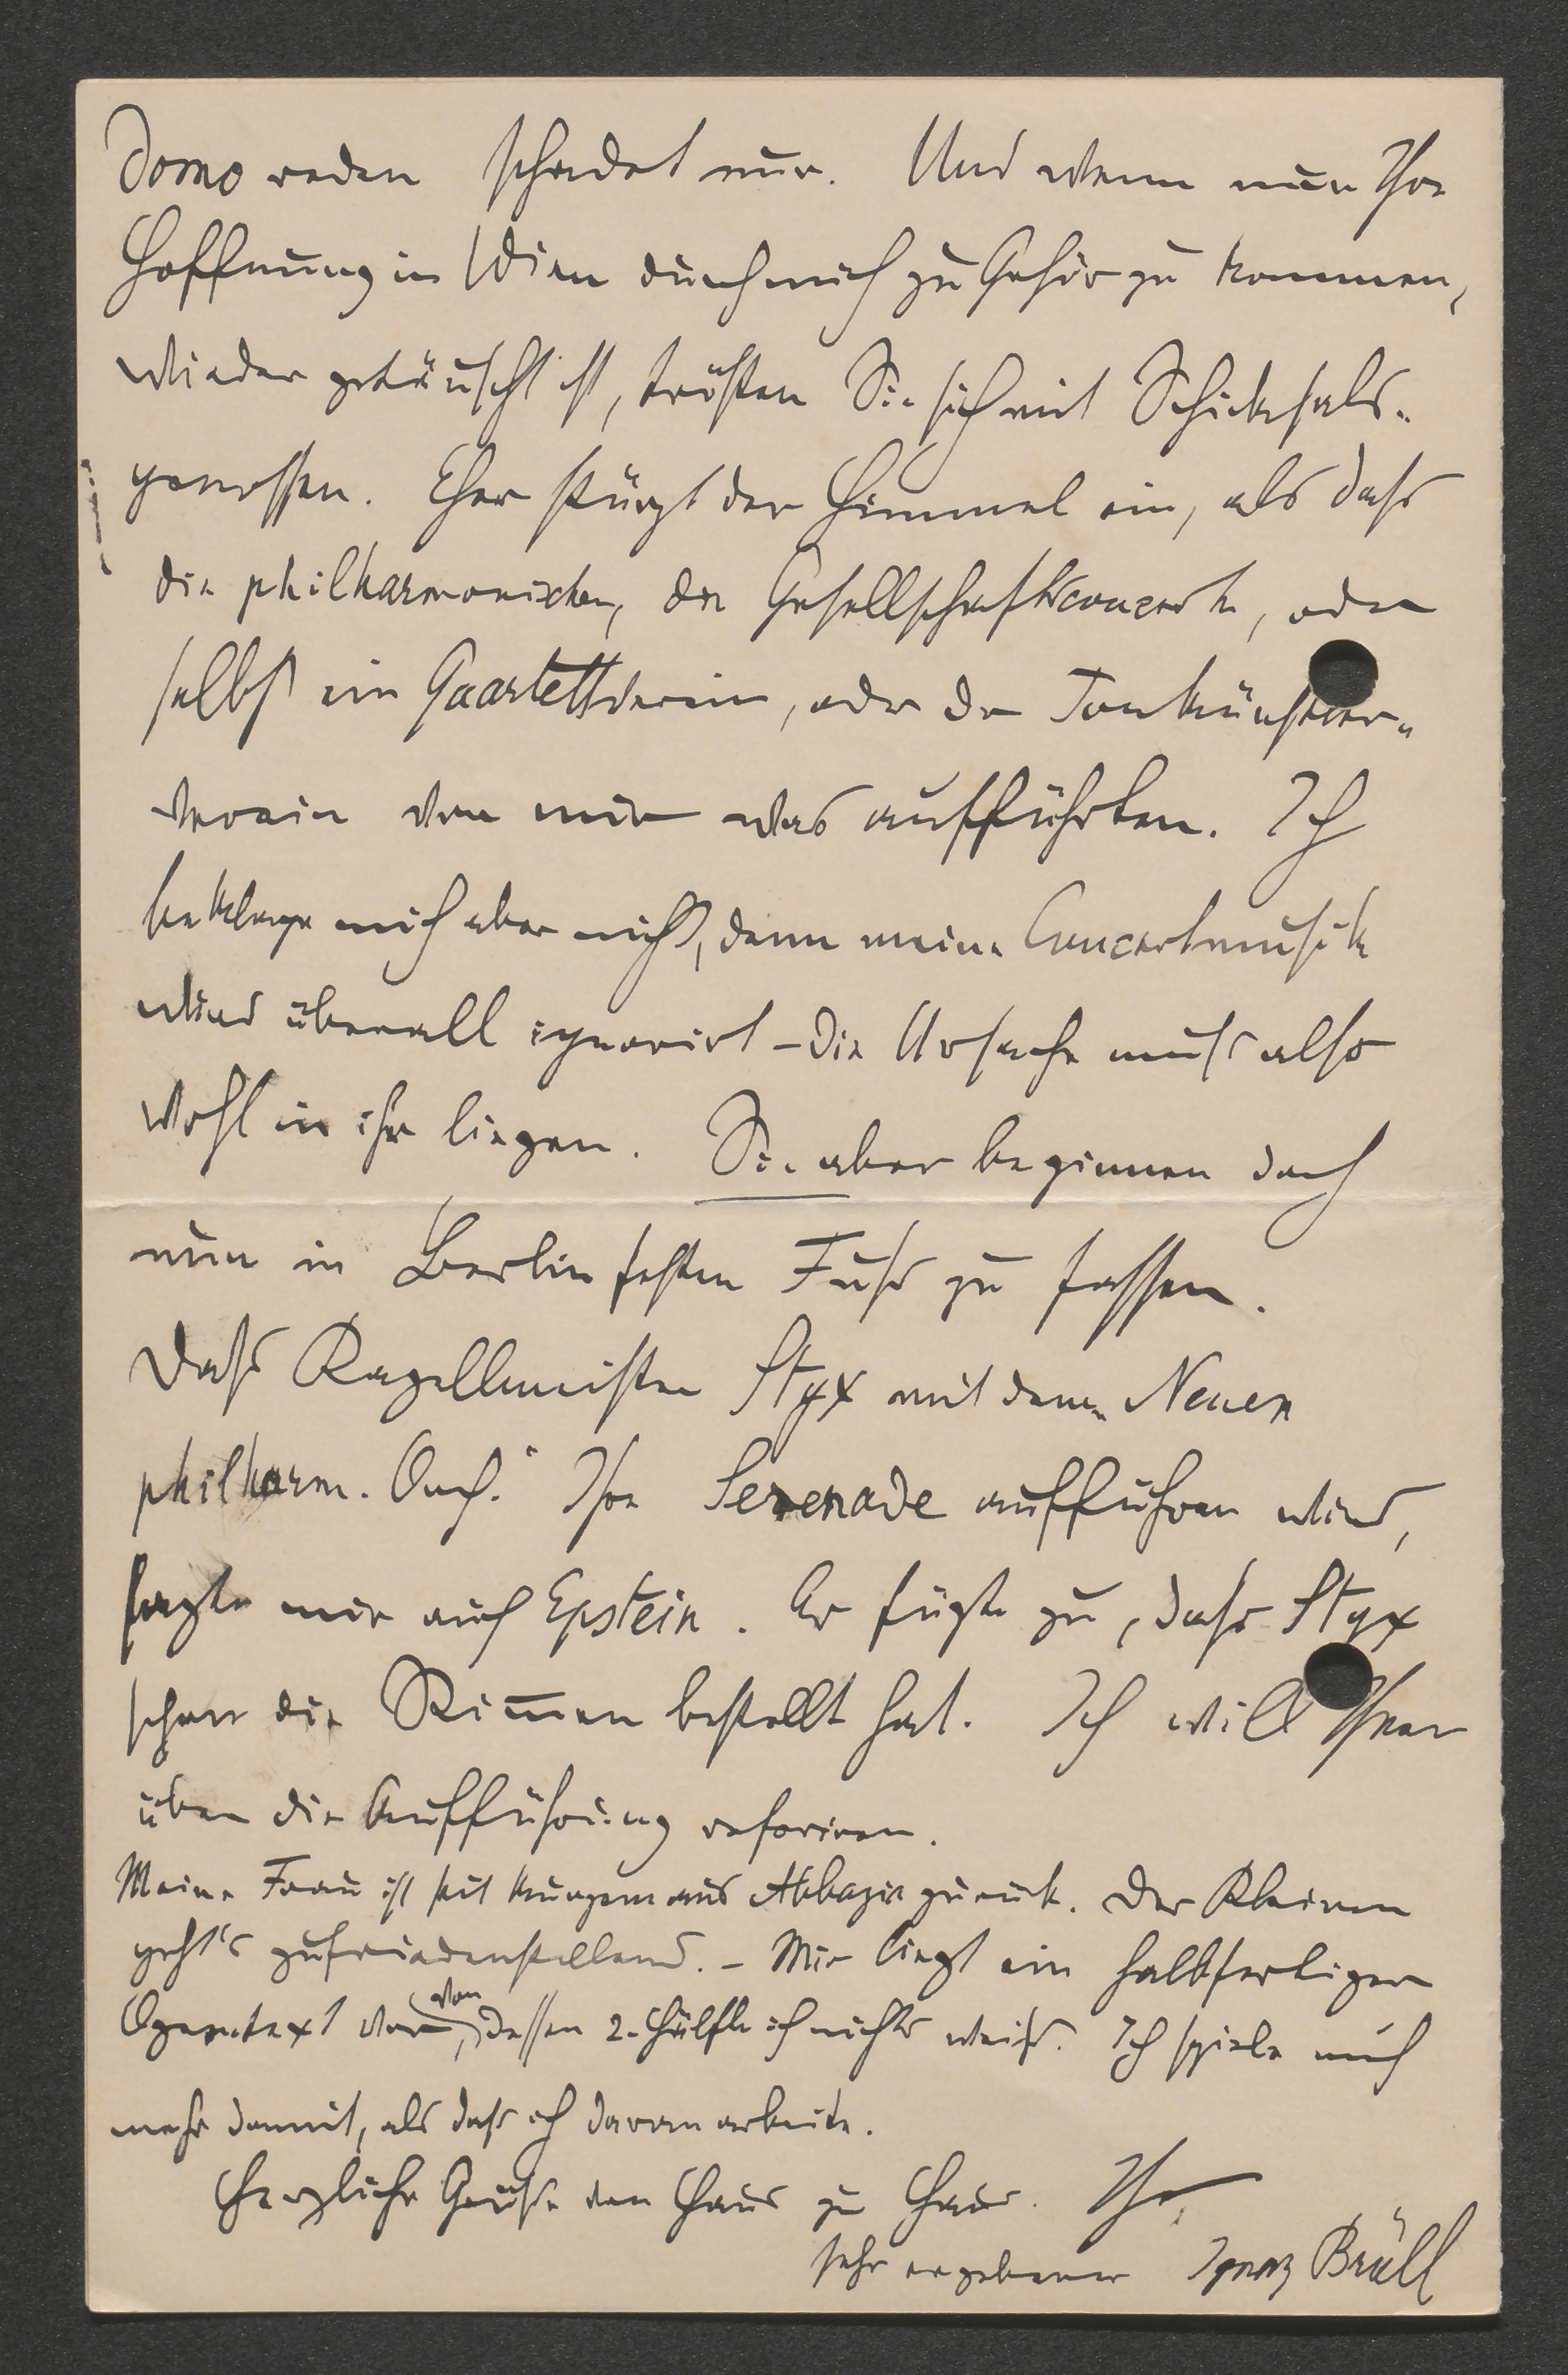 domo reden schadet nur. Und wenn nun Ihre
Hoffnung in Wien durch mich zu Gehör zu kommen,
wieder getäuscht ist, trösten Sie sich mit Schicksals-
genossen. Eher stürzt der Himmel ein, als dass
die philharmonischen, die Gesellschaftsconcerte, oder
selbst ein Quartettverein, oder der Tonkünstler-
verein von mir was aufführten. Ich
beklage mich aber nicht, denn meine Concertmusik
wird überall ignorirt – die Ursache muss also
wohl in ihr liegen. Sie aber beginnen doch
nun in Berlin festen Fuss zu fassen.
Dass Kapellmeister Styx mit dem „Neuen
philharm. Orch." Ihre Serenade aufführen wird,
sagte mir auch Epstein. Er fügte zu, dass Styx
schon die Stimmen bestellt hat. Ich will Ihnen
über die Aufführung referiren.
Meine Frau ist seit kurzem aus Abbazia zurück. Der Kleinen
geht's zufriedenstellend. – Mir liegt ein halbfertiger
Operntext vor, von dessen 2. Hälfte ich nichts weiss. Ich spiele mich
mehr damit, als dass ich daran arbeite.
Herzliche Grüsse von Haus zu Haus. Ihr
sehr ergebener Ignaz Brüll